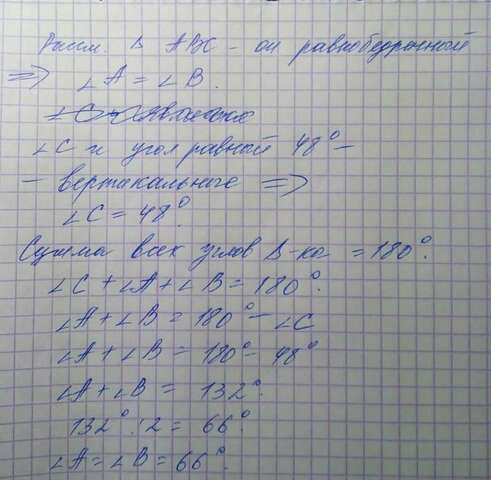 Рассм. Δ ABC - он равнобедренный
=> ∠A = ∠B.
∠C и угол равный 48° -
- вертикальные =>
∠C = 48°.
Сумма всех углов Δ-ка = 180°.
∠C + ∠A + ∠B = 180°.
∠A + ∠B = 180° - ∠C
∠A + ∠B = 180° - 48°
∠A + ∠B = 132°.
132° : 2 = 66°.
∠A = ∠B = 66°.